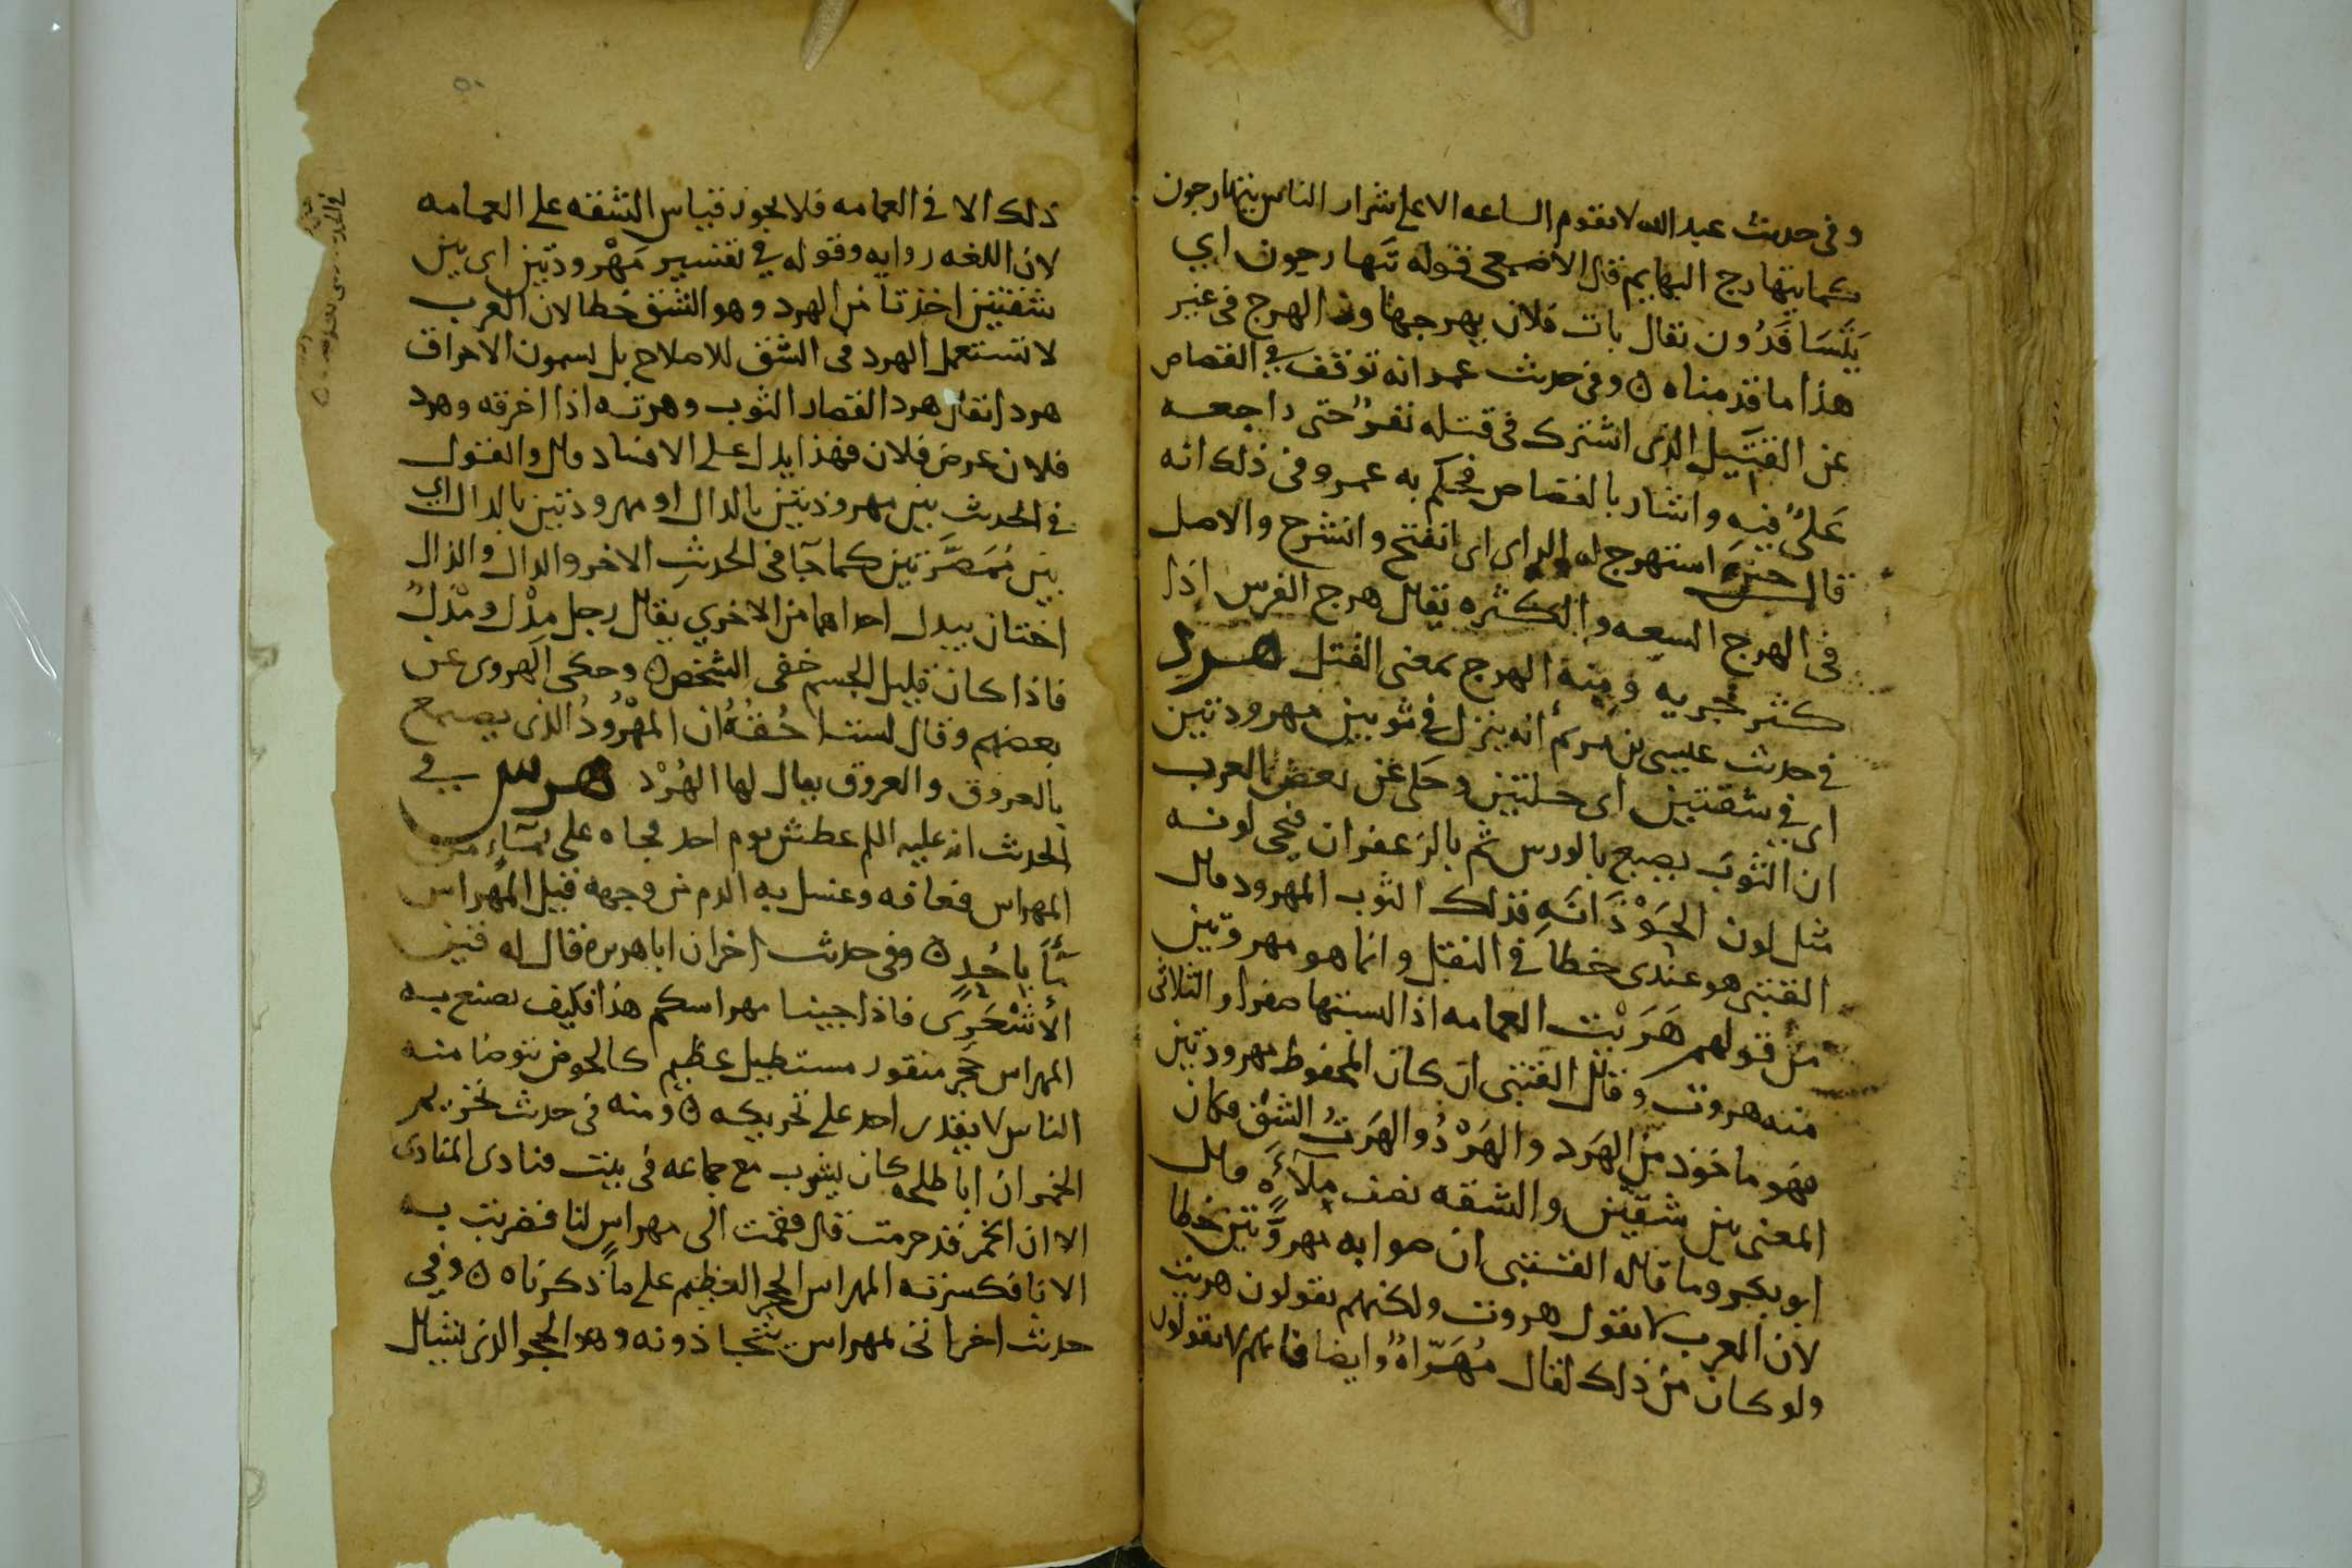 وفى حديث عبد الله لا تقوم الساعه الا على شرار الناس يتهارجون
كما يتهارج البهايم قال الاصمعى قوله تهارجون اي
يتسافدون يقال بات فلان يهرجها ونرى الهرج فى غير
هذا ما قدمناه ٥ وفى حديث عمر انه توقف في القصاص
عن القتيل الذى اشترك فى قتله نفر حتى راجعه
على فيه واشار بالقصاص فحكم به عمر وفى ذلك انه
قال حين استهرج له الراى اى انفتح وانشرح والاصل
فى الهرج السعه والكثره يقال هرج الفرس اذا
كثر جريه ومنه الهرج بمعنى القتل هرد
في حديث عيسى بن مريم انه ينزل في ثوبين مهرودتين
اى في شقتين اى حلتين وحكى عن بعض العرب
ان الثوب يصبغ بالورس ثم بالزعفران فيجى لونه
مثل لون الحوذانه فذلك الثوب المهرود قال
القتبى هو عندى خطا في النقل وانما هو مهروتين
من قولهم هريت العمامه اذا لبستها صفرا والثلاثى
منه هروت وقال القتبى ان كان المحفوظ مهرودتين
فهو ماخوذ من الهرد والهرد والهرت الشق فكان
المعنى بين شقتين والشقه نصف ملاءة قال
ابو بكر وما قاله القتبى ان صوابه مهروتين خطا
لان العرب لا تقول هروت ولكنهم يقولون هريت
ولو كان من ذلك لقال مهراه وايضا فانهم لا يقولون
ذلك الا في العمامه فلا يجوز قياس الشقه على العمامه
لان اللغه روايه وقوله في تفسير مهرودتين اى بين
شقتين اخذتا من الهرد وهو الشق خطا لان العرب
لا تستعمل الهرد فى الشق للاصلاح بل يسمون الاحراق
هردا يقال هرد القصار الثوب وهرته اذا اخرقه وهرد
فلان عرض فلان فهذا يدل على الافساد قال والقول
في الحديث بين مهروذتين بالذال او مهرودتين بالدال اي
بين ممصرتين كما جآ فى الحديث الاخر والدال والذال
اختان يبدل احداهما من الاخرى يقال رجل مدل ومذل
فاذا كان قليل الجسم خفى الشخص ٥ وحكى الهروى عن
بعضهم وقال لست احقه ان المهرود الذى يصبغ
بالعروق والعروق يقال لها الهرد هرس في
الحديث انه عليه السلم عطش يوم احد فجاه على بمآء من
المهراس فعافه وغسل به الدم من وجهه قيل المهراس
مآ باحد ٥ وفى حديث اخر ان ابا هريره قال له قين
الاشجعى فاذا جينا مهراسكم هذا فكيف نصنع به
المهراس حجر منقور مستطيل عظيم كالحوض يتوضا منه
الناس لا يقدر احد على تحريكه ٥ ومنه فى حديث تحريم
الخمر ان ابا طلحه كان يشرب مع جماعه فى بيت فنادى المنادى
الا ان الخمر قد حرمت قال فقمت الى مهراس لنا فضربت به
الانا فكسرته المهراس الحجر العظيم على ما ذكرناه ٥ وفي
حديث اخر انى لمهراس يتجاذونه وهو الحجر الذى يشال